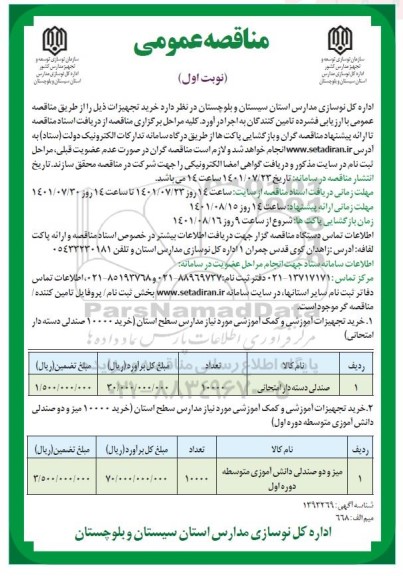 مناقصه عمومی
(نوبت اول)
سازمان نوسازی توسعه و
تجهیز مدارس کشور
اداره کل نوسازی مدارس
استان سیستان و بلوچستان
سازمان نوسازی توسعه و
تجهیز مدارس کشور
اداره کل نوسازی مدارس
استان سیستان و بلوچستان
اداره کل نوسازی مدارس استان سیستان و بلوچستان در نظر دارد خرید تجهیزات ذیل را از طریق مناقصه
عمومی با ارزیابی فشرده تامین کنندگان به اجرا درآورد. کلیه مراحل برگزاری مناقصه از دریافت اسناد مناقصه
تا ارائه پیشنهاد مناقصه گران و بازگشایی پاکت ها از طریق درگاه سامانه تدارکات الکترونیک دولت (ستاد) به
آدرس www.setadiran.ir انجام خواهد شد و لازم است مناقصه گران در صورت عدم عضویت قبلی، مراحل
ثبت نام در سایت مذکور و دریافت گواهی امضا الکترونیکی را جهت شرکت در مناقصه محقق سازند. تاریخ
انتشار مناقصه در سامانه: تاریخ ۱۴۰۱/۰۷/۲۳ ساعت ۱۴ می باشد.
مهلت زمانی دریافت اسناد مناقصه از سایت: ساعت ۱۴ روز ۱۴۰۱/۰۷/۲۳ تا ساعت ۱۴ روز ۱۴۰۱/۰۷/۳۰
مهلت زمانی ارائه پیشنهاد: ساعت ۱۴ روز ۱۴۰۱/۰۸/۱۵
زمان بازگشایی پاکت ها: شروع از ساعت ۹ روز ۱۴۰۱/۰۸/۱۶
اطلاعات تماس دستگاه مناقصه گزار جهت دریافت اطلاعات بیشتر در خصوص اسناد مناقصه و ارائه پاکت
لفافه: آدرس: زاهدان کوی قدس چمران ۱ اداره کل نوسازی مدارس استان و تلفن ۰۵۴۳۳۲۳۰۱۸۱
اطلاعات سامانه ستاد جهت انجام مراحل عضویت در سامانه:
مرکز تماس: ۰۲۱-۱۳۷۱۷۱۷۱ دفتر ثبت نام: ۸۸۹۶۹۷۳۷-۰۲۱ و ۸۵۱۹۳۷۶۸-۰۲۱، اطلاعات تماس
دفاتر ثبت نام سایر استانها، در سایت سامانه www.setadiran.ir بخش ثبت نام / پروفایل تامین کننده /
مناقصه گر موجود است.
ParsNamadData
۱. خرید تجهیزات آموزشی و کمک آموزشی مورد نیاز مدارس سطح استان (خرید ۱۰۰۰۰ صندلی دسته دار
امتحانی)
ردیف نام کالا تعداد مبلغ کل برآورد (ریال) مبلغ تضمین (ریال)
۱ صندلی دسته دار امتحانی ۱۰۰۰۰ ۳۰/۰۰۰/۰۰۰/۰۰۰ ۱/۵۰۰/۰۰۰/۰۰۰
۲. خرید تجهیزات آموزشی و کمک آموزشی مورد نیاز مدارس سطح استان (خرید ۱۰۰۰۰ میز و دو صندلی
دانش آموزی متوسطه دوره اول)
ردیف نام کالا تعداد مبلغ کل برآورد (ریال) مبلغ تضمین (ریال)
۱ میز و دو صندلی دانش آموزی متوسطه دوره اول ۱۰۰۰۰ ۷۰/۰۰۰/۰۰۰/۰۰۰ ۳/۵۰۰/۰۰۰/۰۰۰
شناسه آگهی: ۱۳۹۳۲۶۹
میم الف: ۶۶۸
اداره کل نوسازی مدارس استان سیستان و بلوچستان